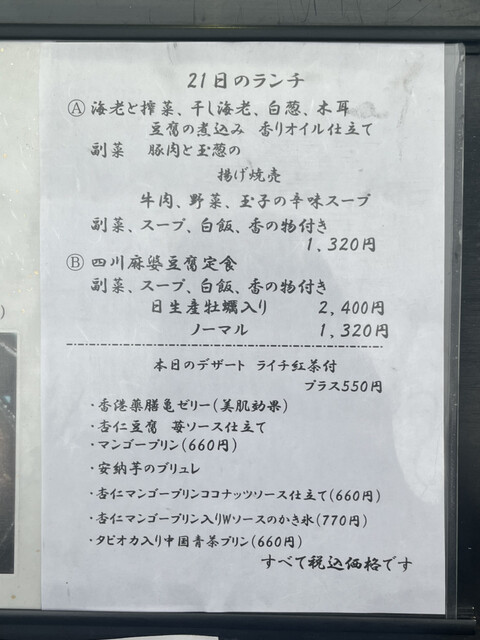 21日のランチ
Ⓐ 海老と搾菜、干し海老、白葱、木耳
豆腐の煮込み 香りオイル仕立て
副菜 豚肉と玉葱の
揚げ焼売
牛肉、野菜、玉子の辛味スープ
副菜、スープ、白飯、香の物付き
1,320円
Ⓑ 四川麻婆豆腐定食
副菜、スープ、白飯、香の物付き
日生産牡蠣入り 2,400円
ノーマル 1,320円
本日のデザート ライチ紅茶付
プラス550円
・香港薬膳亀ゼリー(美肌効果)
・杏仁豆腐 苺ソース仕立て
・マンゴープリン(660円)
・安納芋のブリュレ
・杏仁マンゴープリンココナッツソース仕立て(660円)
・杏仁マンゴープリン入りWソースのかき氷(770円)
・タピオカ入り中国青茶プリン(660円)
すべて税込価格です